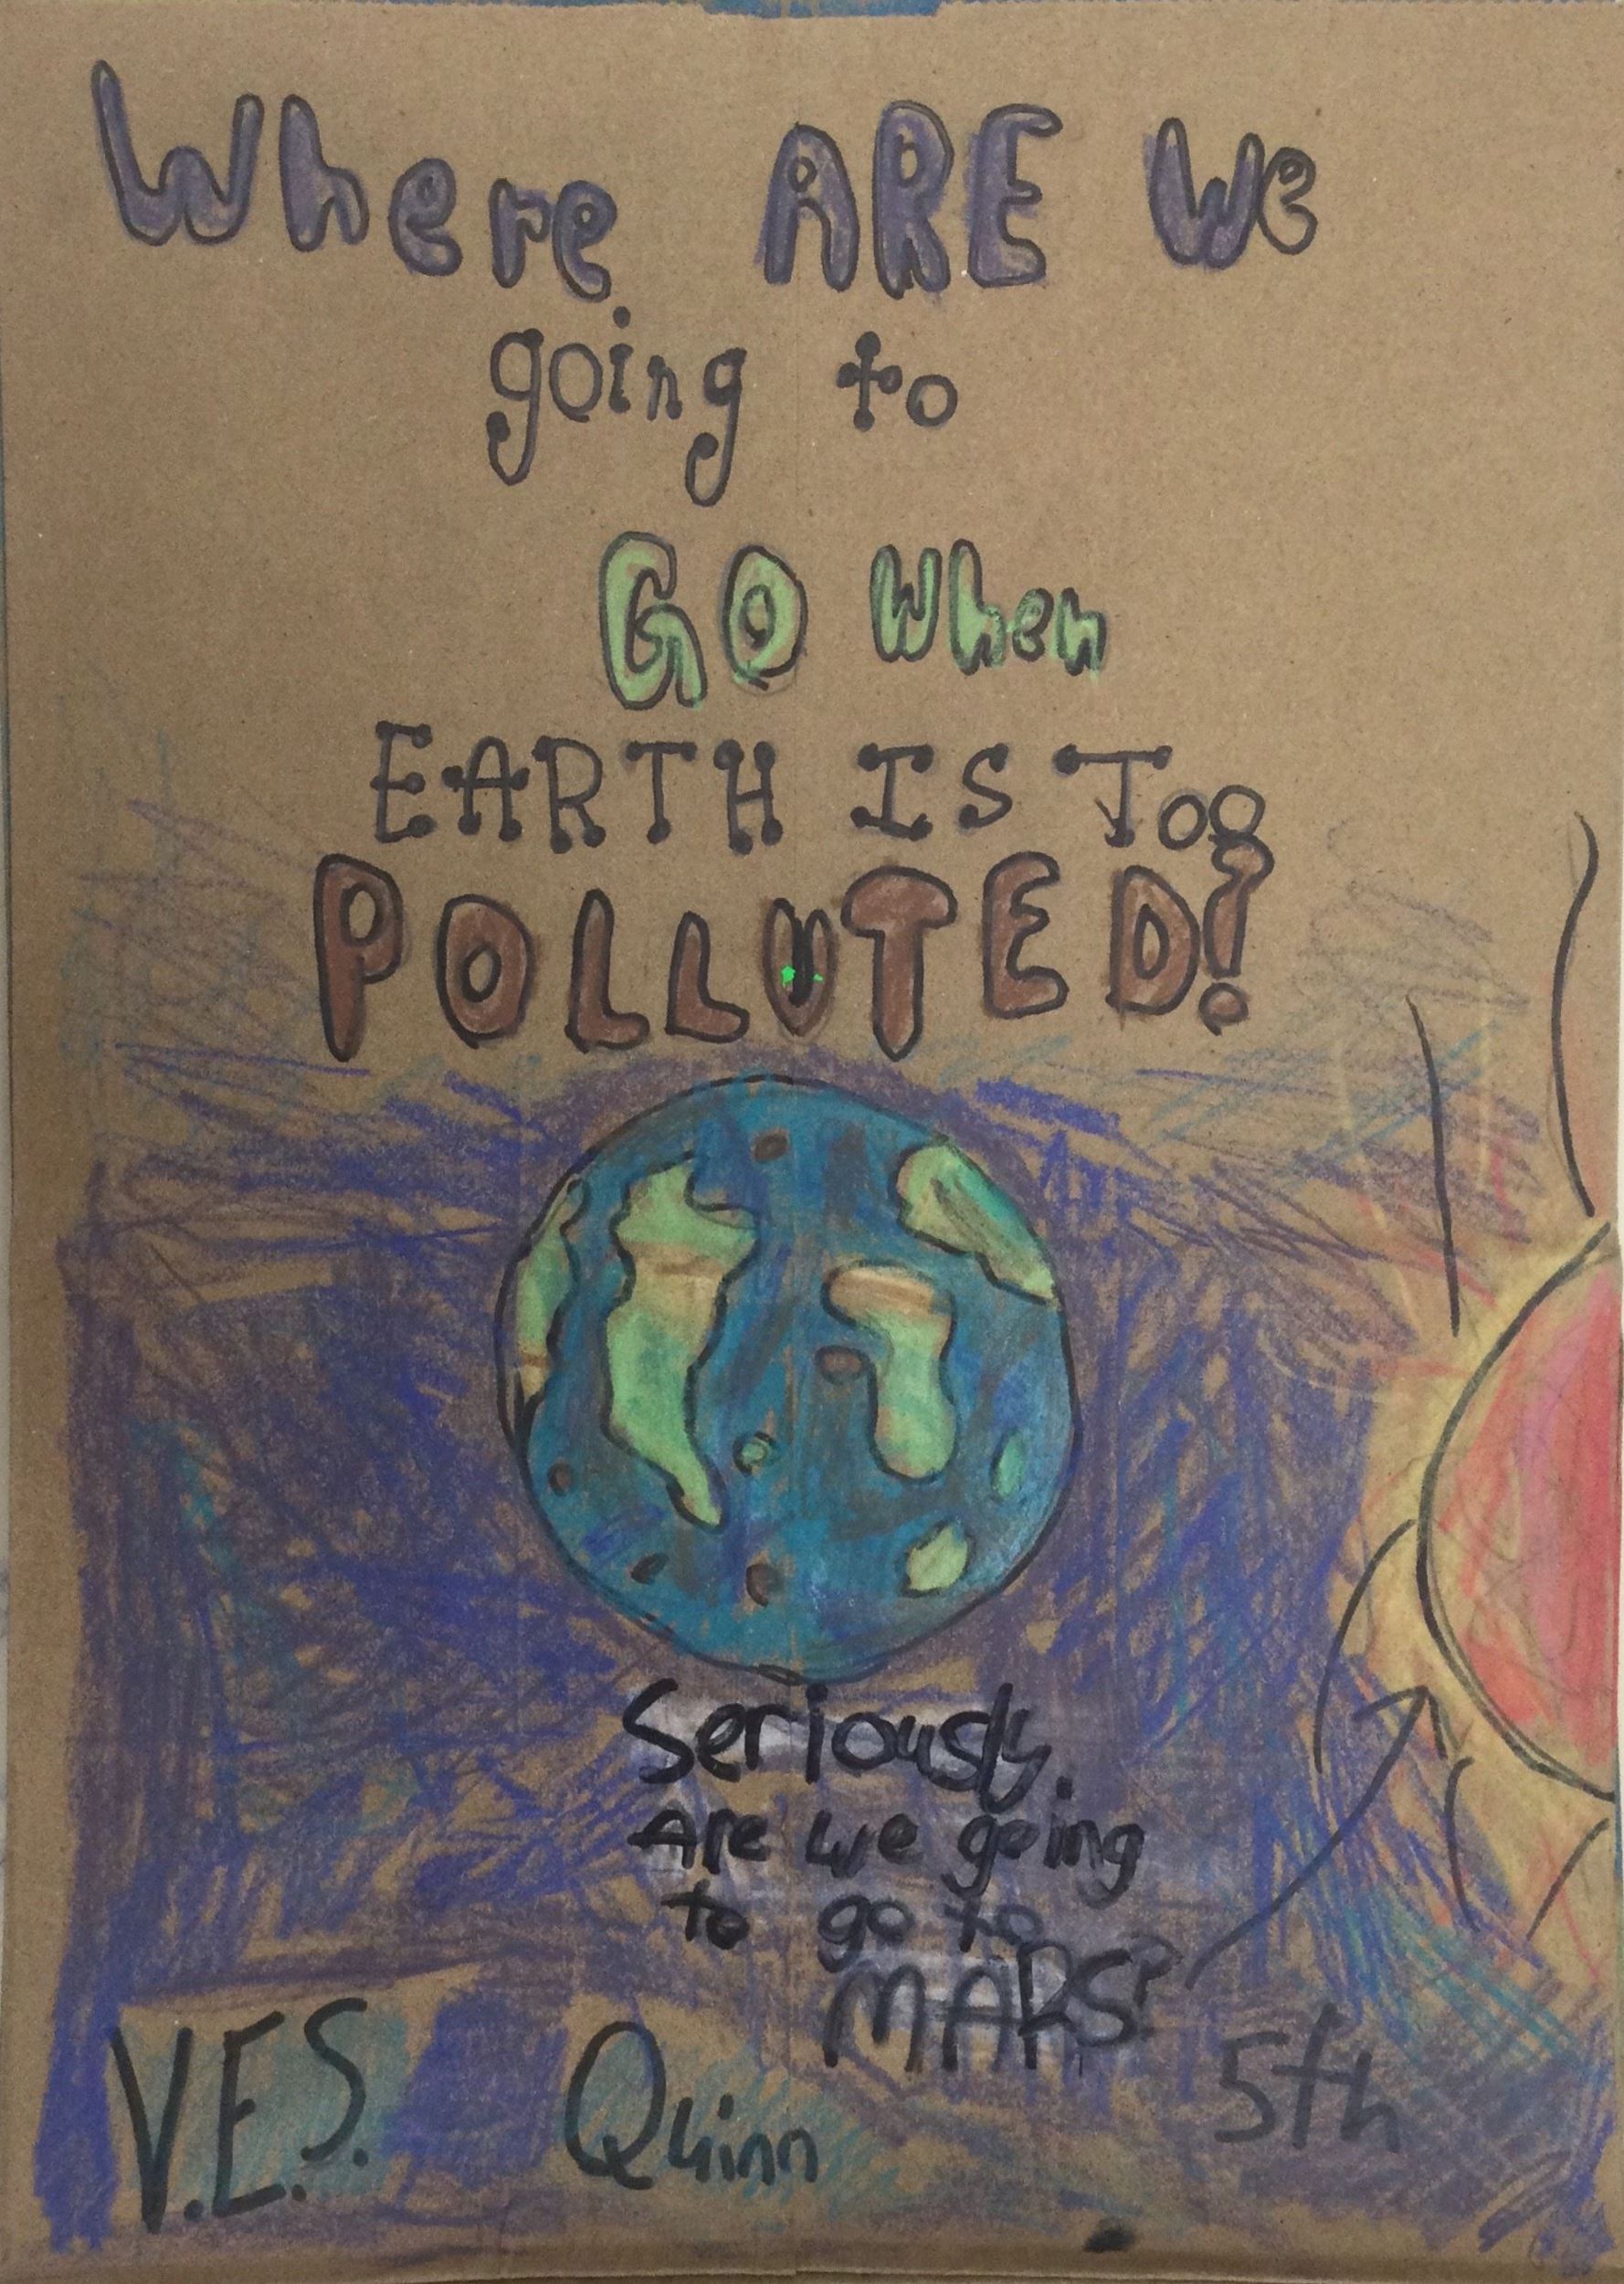 Where ARE We
going to
GO When
EARTH IS Too
POLLUTED?
Seriously.
Are we going
to go to
MARS?
V.E.S. Quinn 5th